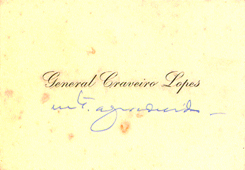 General Craveiro Lopes
mt. agradecido